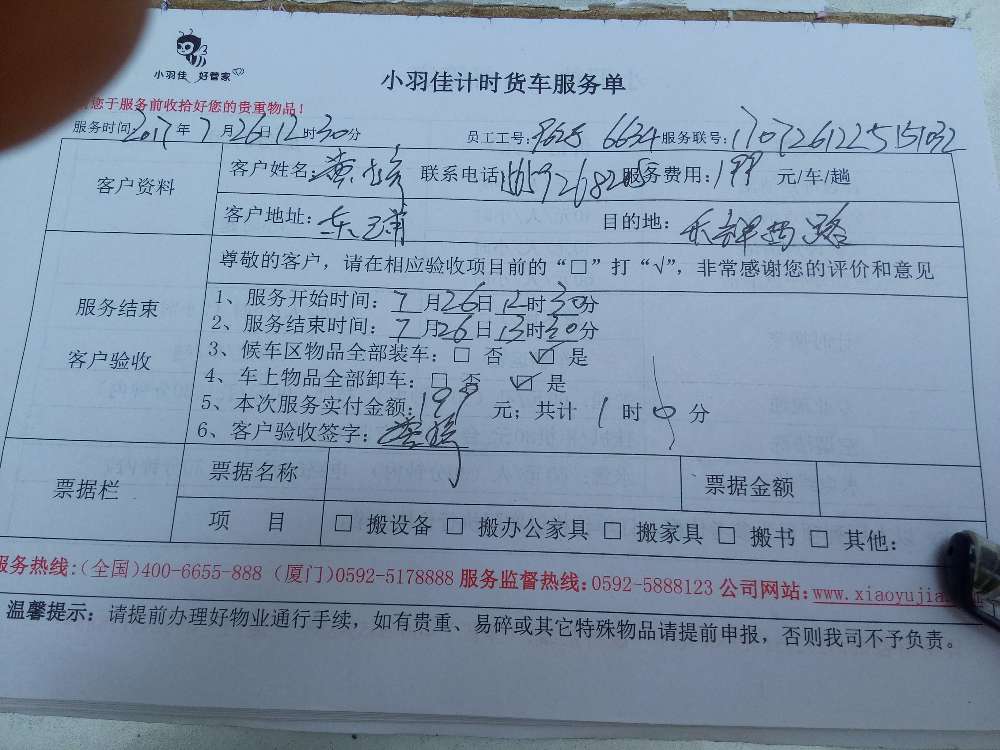 小羽佳 好管家
小羽佳计时货车服务单
您于服务前收拾好您的贵重物品！
服务时间：2017年7月26日12时30分 员工工号： 6634 服务联号：170726122515132
客户资料 客户姓名：黄 联系电话： 服务费用：199 元/车/趟
客户地址：东浦 目的地：
尊敬的客户，请在相应验收项目前的“□”打“√”，非常感谢您的评价和意见
服务结束 客户验收
1、服务开始时间：7月26日12时30分
2、服务结束时间：7月26日13时30分
3、候车区物品全部装车：□ 否 ☑ 是
4、车上物品全部卸车：□ 否 ☑ 是
5、本次服务实付金额：199 元；共计 1 时 0 分
6、客户验收签字：
票据栏 票据名称 票据金额
项 目 □ 搬设备 □ 搬办公家具 □ 搬家具 □ 搬书 □ 其他：
服务热线：(全国)400-6655-888 (厦门)0592-5178888 服务监督热线：0592-5888123 公司网站：www.xiaoyujia
温馨提示：请提前办理好物业通行手续，如有贵重、易碎或其它特殊物品请提前申报，否则我司不予负责。